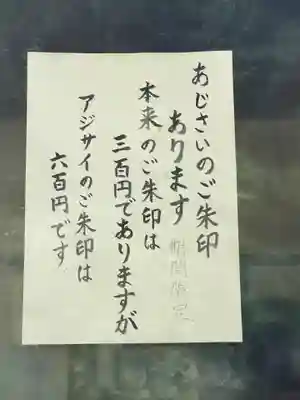 あじさいのご朱印
あります
期間限定
本来のご朱印は
三百円でありますが
アジサイのご朱印は
六百円です